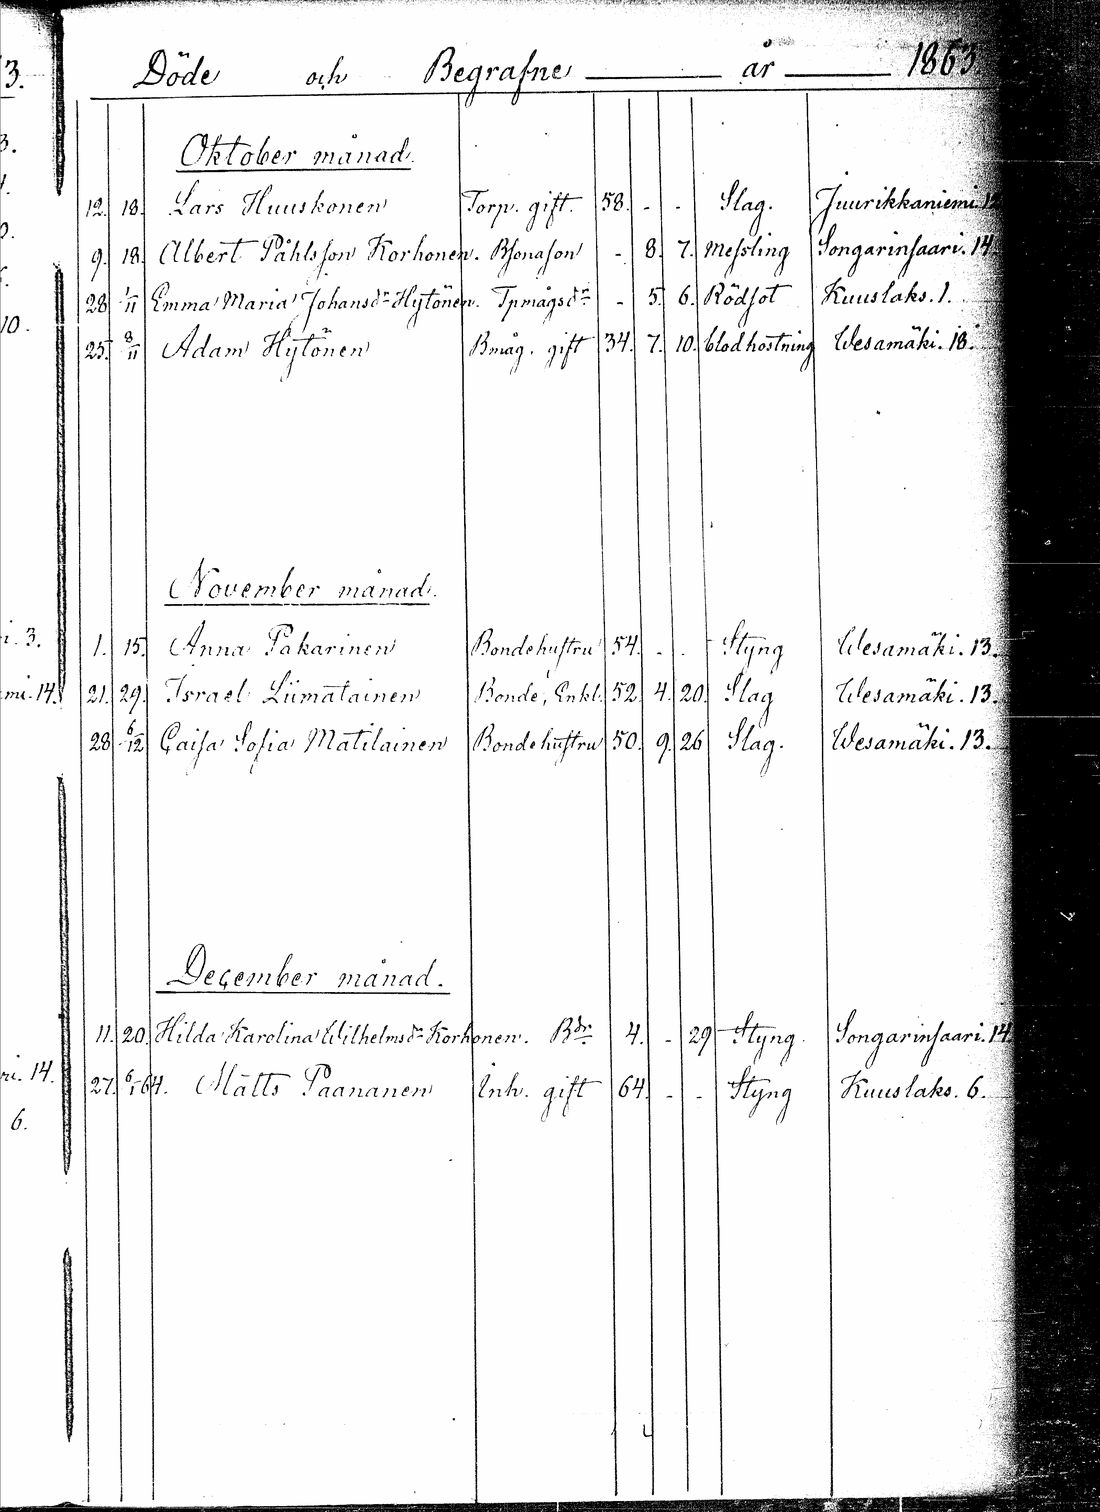 Döde och Begrafne år 1863
Oktober månad.
12. 18. Lars Huuskonen Torp. gift. 58. - - Slag. Juurikkaniemi. 12
9. 18. Albert Påhlsson Korhonen. Bsonason - 8. 7. Messling Songarinsaari. 14.
28 1/11 Emma Maria Johansdr Hytönen. Tpmågsdr - 5. 6. Rödsot Kuuslaks. 1.
25. 8/11 Adam Hytönen Bmåg. gift 34. 7. 10. blodhostning Wesamäki. 18.
November månad.
1. 15. Anna Pakarinen Bondehustru 54. - - Styng Wesamäki. 13.
21. 29. Israel Liimatainen Bonde, Enkl. 52. 4. 20. Slag Wesamäki. 13.
28 6/12 Caisa Sofia Matilainen Bondehustru 50. 9. 26 Slag. Wesamäki. 13.
December månad.
11. 20. Hilda Karolina Wilhelmsdr Korhonen. Bdr 4. - 29 Styng. Songarinsaari. 14.
27. 6/1 64. Matts Paananen Inh. gift 64. - - Styng Kuuslaks. 6.
3.
10.
i. 3.
mi. 14.
ri. 14.
6.